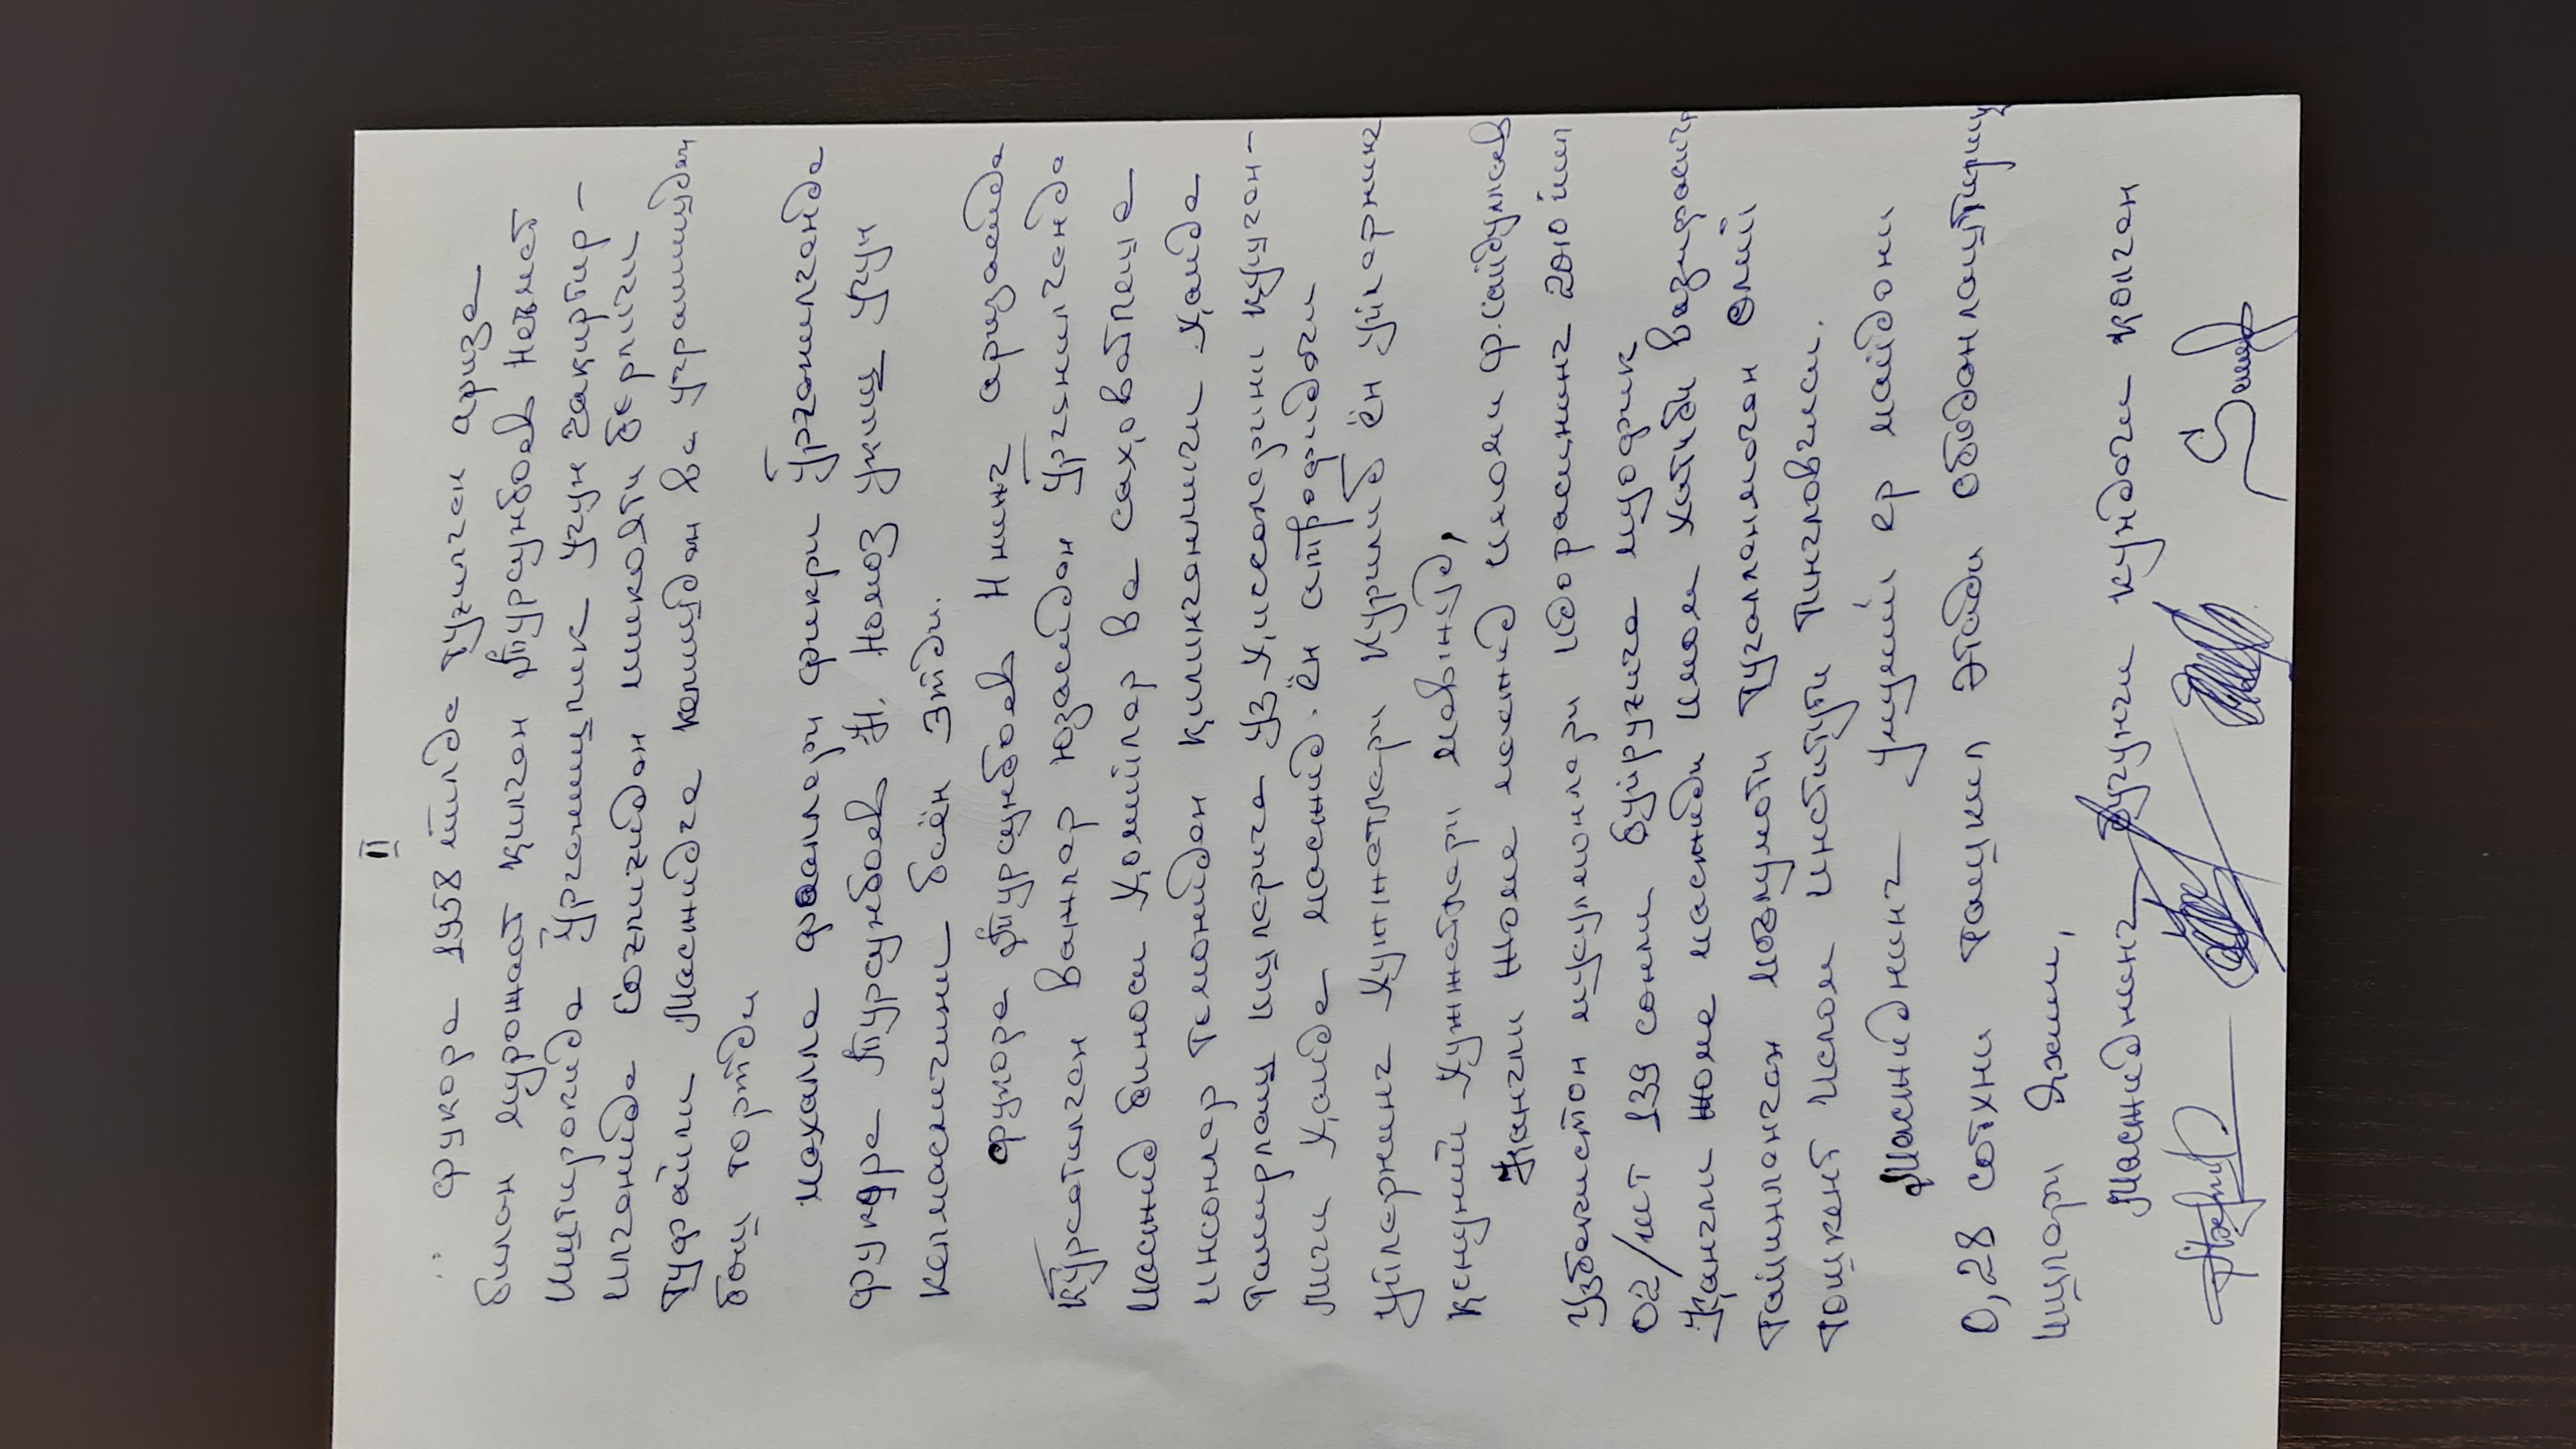 II
фукора 1958 йилда туғилган ариза
билан мурожаат қилган Турсунбоев Неъмат
Иштирокида ўрганишлик учун чақиртир-
илганида соғлиғидан шикояти борлиги
туфайли Масжидга келишдан ва учрашишдан
бош тортди
махалла фааллари фикри ўрганилганда
фукора Турсунбоев Н. Номоз укиш учун
келмаслигини баён этди.
фукора Турсунбоев Н нинг аризасида
кўрсатилган важлар юзасидан ўрганилганда
масжид биноси Ҳомийлар ва саҳоватпеша
инсонлар томонидан қилинганлиги Ҳамда
тамирлаш ишларига уз Ҳиссаларини қушган-
лиги Ҳамда масжид ён атрофидаги
уйларнинг Ҳужжатлари Курилиб ён уйларнинг
қонуний Ҳужжатлари мавжуд,
Қангли Жоме масжид имоми Ф.Сайдуллаев
Узбекистон мусулмонлари Идорасининг 2010 йил
02/шт 139 сонли буйруғига муофик
Қангли Жоме масжиди имом хатиби вазифасига
тайинланган маълумоти тугалланмаган Олий
Тошкент Ислом Институти тингловчиси.
Масжиднинг умумий ер майдони
0,28 сотхни ташкил этади ободонлаштириш
ишлари яхши,
Масжиднинг бугунги кундаги қолган